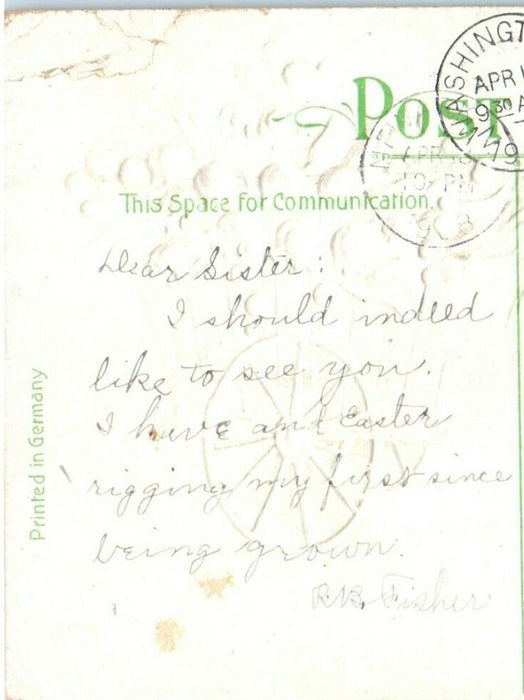 WASHINGT
APR 1
9 30 A
19
POST
APR 18
10 PM
1908
This Space for Communication.
Dear Sister:
I should indeed
like to see you.
I have and Easter
rigging my first since
being grown.
R.B. Fisher
Printed in Germany